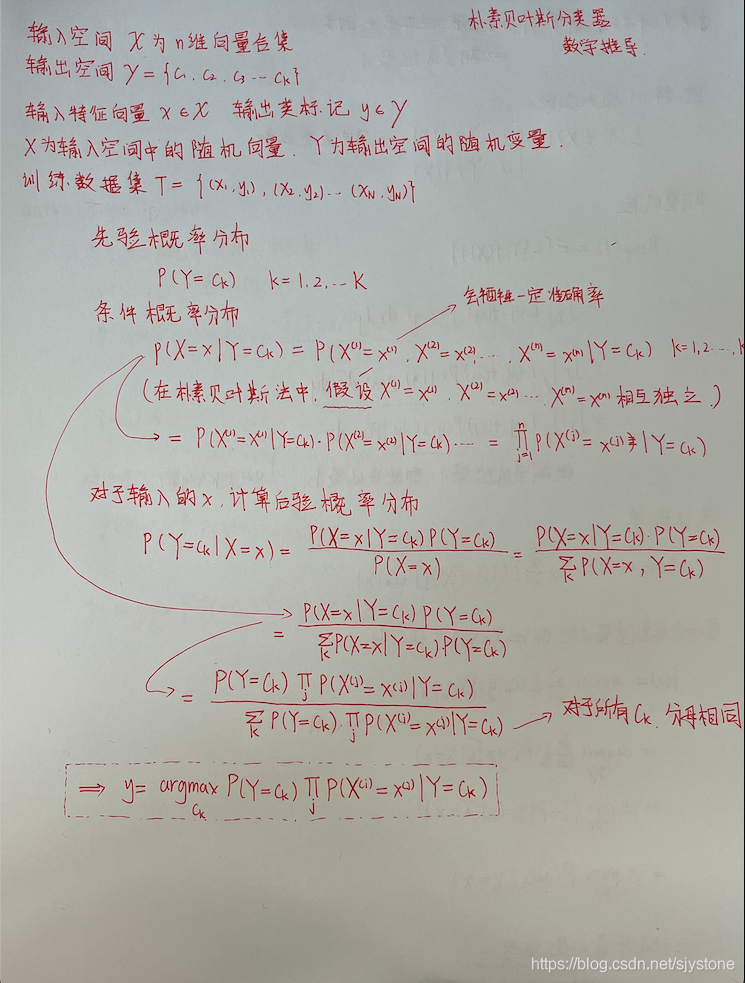 朴素贝叶斯分类器
数学推导.
输入空间 X 为n维向量合集
输出空间 Y = {C₁, C₂, C₃ … Cₖ}
输入特征向量 x∈X 输出类标记 y∈Y
X为输入空间中的随机向量. Y为输出空间的随机变量.
训练数据集 T = {(X₁,y₁), (X₂,y₂)… (X_N,y_N)}
先验概率分布
P(Y=Cₖ) k=1,2,…K
会牺牲一定准确率
条件概率分布
P(X=x|Y=Cₖ) = P(X⁽¹⁾=x⁽¹⁾, X⁽²⁾=x⁽²⁾…, X⁽ⁿ⁾=x⁽ⁿ⁾|Y=Cₖ) k=1,2…,
(在朴素贝叶斯法中, 假设 X⁽¹⁾=x⁽¹⁾, X⁽²⁾=x⁽²⁾… X⁽ⁿ⁾=x⁽ⁿ⁾ 相互独立.)
= P(X⁽¹⁾=x⁽¹⁾|Y=Cₖ)·P(X⁽²⁾=x⁽²⁾|Y=Cₖ)… = ∏_{j=1}^{n} P(X⁽ʲ⁾=x⁽ʲ⁾|Y=Cₖ)
对于输入的x, 计算后验概率分布
P(Y=Cₖ|X=x) = P(X=x|Y=Cₖ)P(Y=Cₖ) / P(X=x) = P(X=x|Y=Cₖ)·P(Y=Cₖ) / ∑_k P(X=x, Y=Cₖ)
= P(X=x|Y=Cₖ)P(Y=Cₖ) / ∑_k P(X=x|Y=Cₖ)P(Y=Cₖ)
= P(Y=Cₖ)∏_j P(X⁽ʲ⁾=x⁽ʲ⁾|Y=Cₖ) / ∑_k P(Y=Cₖ)·∏_j P(X⁽ʲ⁾=x⁽ʲ⁾|Y=Cₖ)
对于所有Cₖ, 分母相同
⟹ y = argmax_{Cₖ} P(Y=Cₖ)∏_j P(X⁽ʲ⁾=x⁽ʲ⁾|Y=Cₖ)
https://blog.csdn.net/sjystone